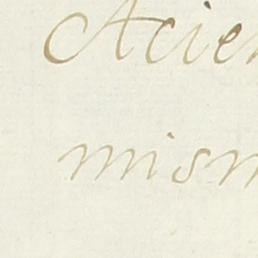 Acien
mism